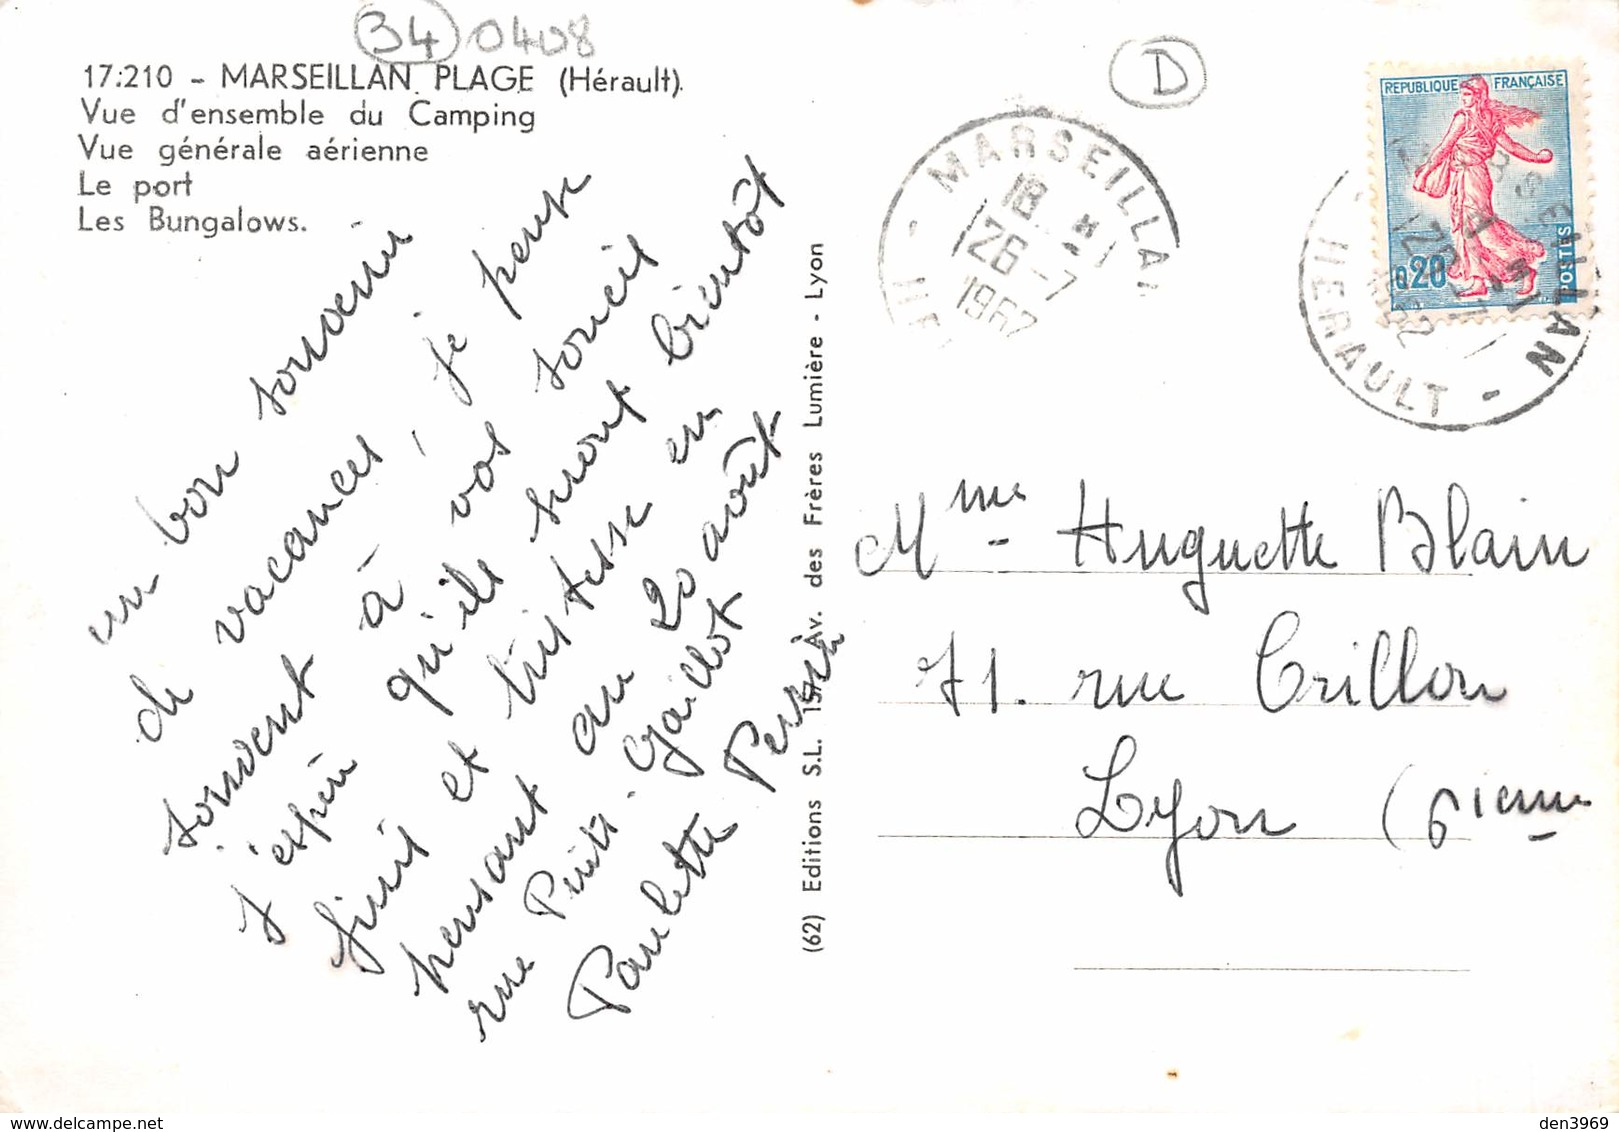 34 0408
17.210 - MARSEILLAN PLAGE (Hérault).
Vue d'ensemble du Camping
Vue générale aérienne
Le port
Les Bungalows.
un bon souvenir
de vacances, je pense
souvent à vos soucis
j'espère qu'ils seront bientôt
finit et tristesse en
pensant au 20 août
rue Puits-Gaillot
Paulette
(62) Editions S.L. Av. des Frères Lumière - Lyon
D
MARSEILLAN
18
26-7
1962
REPUBLIQUE FRANÇAISE
0,20
POSTES
MARSEILLAN
HERAULT
Mme Huguette Blain
71. rue Crillon
Lyon (6ieme
den3969